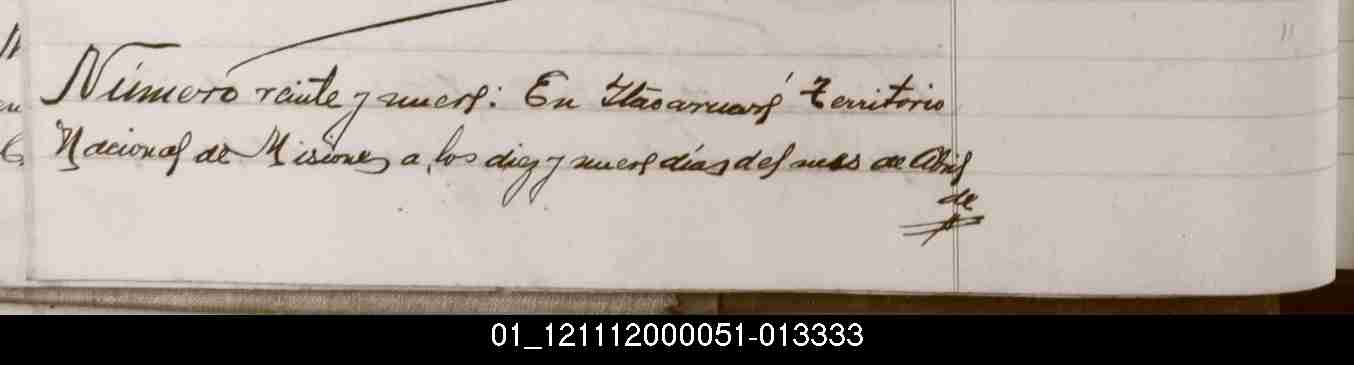 Número veinte y nueve: En Itacaruaré Territorio
Nacional de Misiones a los diez y nueve días del mes de Abril
de
01_121112000051-013333